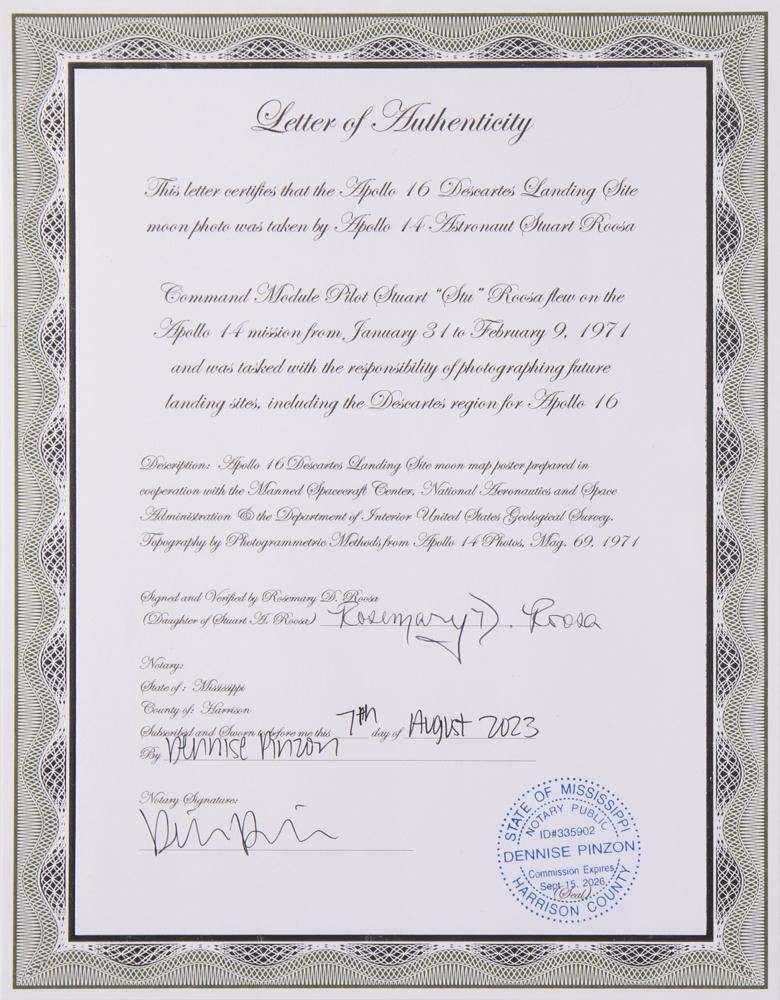 Letter of Authenticity
This letter certifies that the Apollo 16 Descartes Landing Site
moon photo was taken by Apollo 14 Astronaut Stuart Roosa
Command Module Pilot Stuart "Stu" Roosa flew on the
Apollo 14 mission from January 31 to February 9, 1971
and was tasked with the responsibility of photographing future
landing sites, including the Descartes region for Apollo 16
Description: Apollo 16 Descartes Landing Site moon map poster prepared in
cooperation with the Manned Spacecraft Center, National Aeronautics and Space
Administration & the Department of Interior United States Geological Survey.
Topography by Photogrammetric Methods from Apollo 14 Photos, Mag. 69, 1971
Signed and Verified by Rosemary D. Roosa
(Daughter of Stuart A. Roosa) Rosemary D. Roosa
Notary:
State of: Mississippi
County of: Harrison
Subscribed and Sworn to before me this 7th day of August 2023
By Dennise Pinzon
Notary Signature:
STATE OF MISSISSIPPI
NOTARY PUBLIC
ID#335902
DENNISE PINZON
Commission Expires
Sept 15, 2026
(Seal)
HARRISON COUNTY